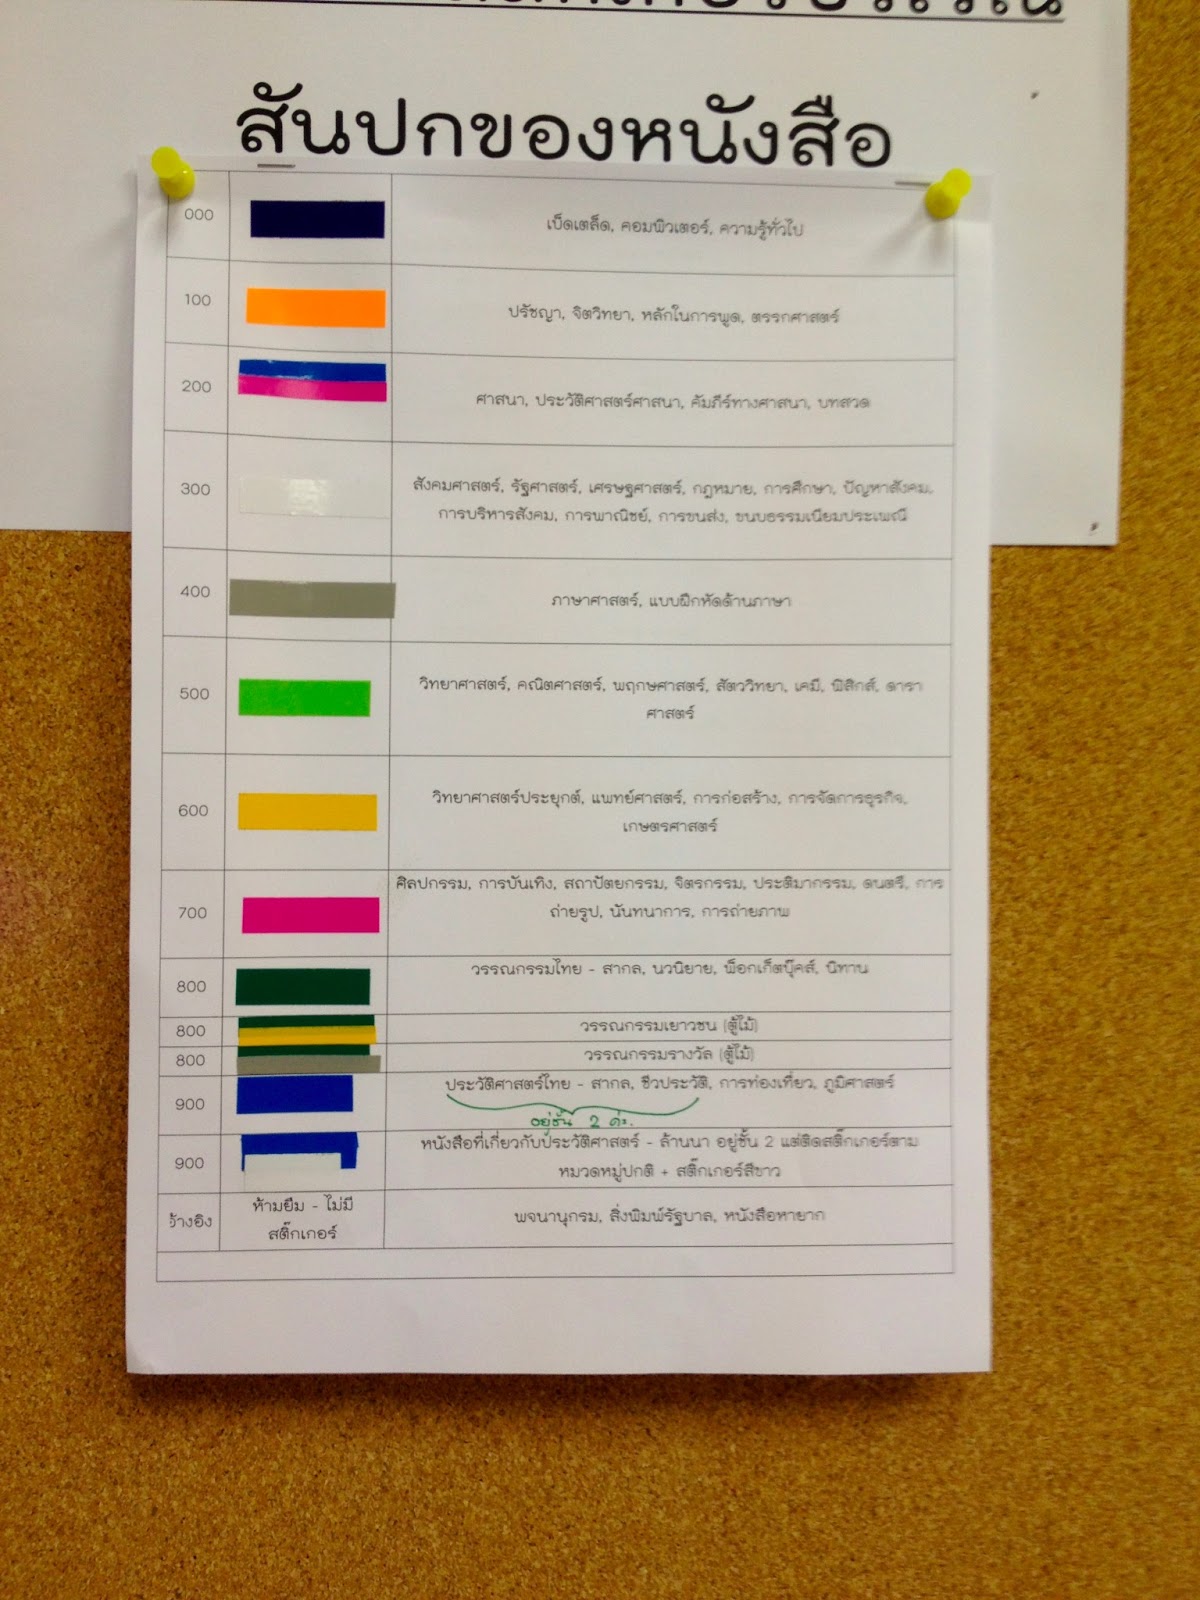 สันปกของหนังสือ
000 เบ็ดเตล็ด, คอมพิวเตอร์, ความรู้ทั่วไป
100 ปรัชญา, จิตวิทยา, หลักในการพูด, ตรรกศาสตร์
200 ศาสนา, ประวัติศาสตร์ศาสนา, คัมภีร์ทางศาสนา, บทสวด
300 สังคมศาสตร์, รัฐศาสตร์, เศรษฐศาสตร์, กฎหมาย, การศึกษา, ปัญหาสังคม,
การบริหารสังคม, การพาณิชย์, การขนส่ง, ขนบธรรมเนียมประเพณี
400 ภาษาศาสตร์, แบบฝึกหัดด้านภาษา
500 วิทยาศาสตร์, คณิตศาสตร์, พฤกษศาสตร์, สัตววิทยา, เคมี, ฟิสิกส์, ดารา
ศาสตร์
600 วิทยาศาสตร์ประยุกต์, แพทย์ศาสตร์, การก่อสร้าง, การจัดการธุรกิจ,
เกษตรศาสตร์
700 ศิลปกรรม, การบันเทิง, สถาปัตยกรรม, จิตรกรรม, ประติมากรรม, ดนตรี, การ
ถ่ายรูป, นันทนาการ, การถ่ายภาพ
800 วรรณกรรมไทย - สากล, นวนิยาย, พ็อกเก็ตบุ๊คส์, นิทาน
800 วรรณกรรมเยาวชน (ตู้ไม้)
800 วรรณกรรมรางวัล (ตู้ไม้)
900 ประวัติศาสตร์ไทย - สากล, ชีวประวัติ, การท่องเที่ยว, ภูมิศาสตร์
อยู่ชั้น 2 ค่ะ.
900 หนังสือที่เกี่ยวกับประวัติศาสตร์ - ล้านนา อยู่ชั้น 2 แต่ติดสติ๊กเกอร์ตาม
หมวดหมู่ปกติ + สติ๊กเกอร์สีขาว
อ้างอิง ห้ามยืม - ไม่มี
สติ๊กเกอร์
พจนานุกรม, สิ่งพิมพ์รัฐบาล, หนังสือหายาก